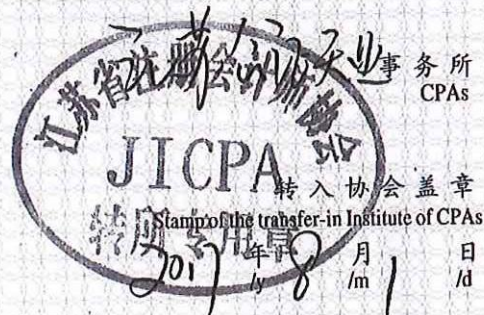 江苏省注册会计师协会
天业事务所
CPAs
JICPA
转入协会盖章
Stamp of the transfer-in Institute of CPAs
转所专用章
2017年8月1日
/y /m /d